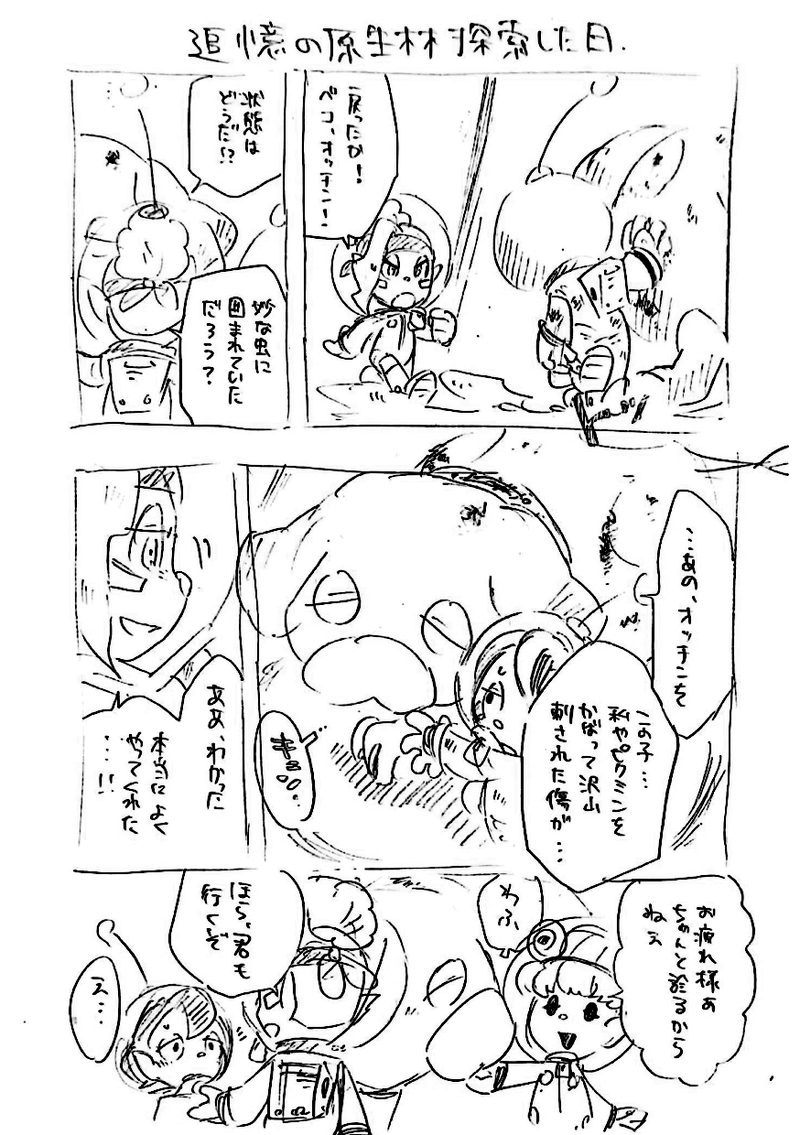 追憶の原生林探索した日.
戻ったか！
ベコ、オッチン！
状態は
どうだ!?
妙な虫に
囲まれていた
だろう？
…あの、オッチンを
この子…
私やピクミンを
かばって沢山
刺された傷が…
キュ…
ああ、わかった
本当によく
やってくれた
…!!
お疲れ様ぁ
ちゃんと診るから
ねぇ
わふ、
ほら、君も
行くぞ
え…